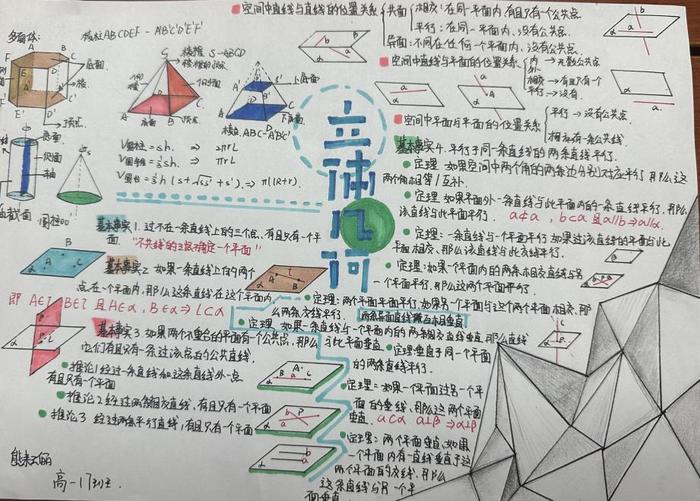 空间中直线与直线的位置关系
共面
相交：在同一平面内，有且只有一个公共点
平行：在同一平面内，没有公共点
异面：不同在任何一个平面内，没有公共点
空间中直线与平面的位置关系
相交→有且只有一个
平行→没有
空间中平面与平面的位置关系
平行→没有公共点
相交
多面体：
棱柱ABCDEF-A'B'C'D'E'F'
棱锥S-ABCD
侧面
底面
顶点
上底面
下底面
棱台ABC-A'B'C'
底面
侧面
轴
立体几何
基本事实1. 过不在一条直线上的三个点，有且只有一个平面.
"不共线的三点确定一个平面"
基本事实2. 如果一条直线上的两个点在一个平面内，那么这条直线在这个平面内
即 A∈l B∈l 且A∈α，B∈α⇒l⊂α
基本事实3 如果两个不重合的平面有一个公共点，那么
它们有且只有一条过该点的公共直线
推论1 经过一条直线和这条直线外一点
有且只有一个平面
推论2 经过两条相交直线，有且只有一个平面
推论3 经过两条平行直线，有且只有一个平面
高一17班
基本事实4. 平行于同一条直线的两条直线平行.
定理 如果空间中两个角的两条边分别对应平行，那么这
两个角相等/互补.
定理 如果平面外一条直线与此平面内的一条直线平行，那么
该直线与此平面平行.
a⊄α，b⊂α 且a∥b⇒a∥α
定理：一条直线与一个平面平行 如果过该直线的平面与此
平面相交，那么该直线与此交线平行.
定理：如果一个平面内的两条相交直线与另
一个平面平行，那么这两个平面平行
定理：两个平面平行，如果另一个平面与这个两个平面相交，那
么两条交线平行.
定理 如果一条直线与一个平面内的两条相交直线垂直，那么直线
与此平面垂直
定理 垂直于同一个平面
的两条直线平行.
定理：如果一个平面过另一个平
面的垂线，那么这两个平面
垂直.
定理：两个平面垂直，如果
一个平面内有一直线垂直于这
两个平面的交线，那么
这条直线与另一个平
面垂直